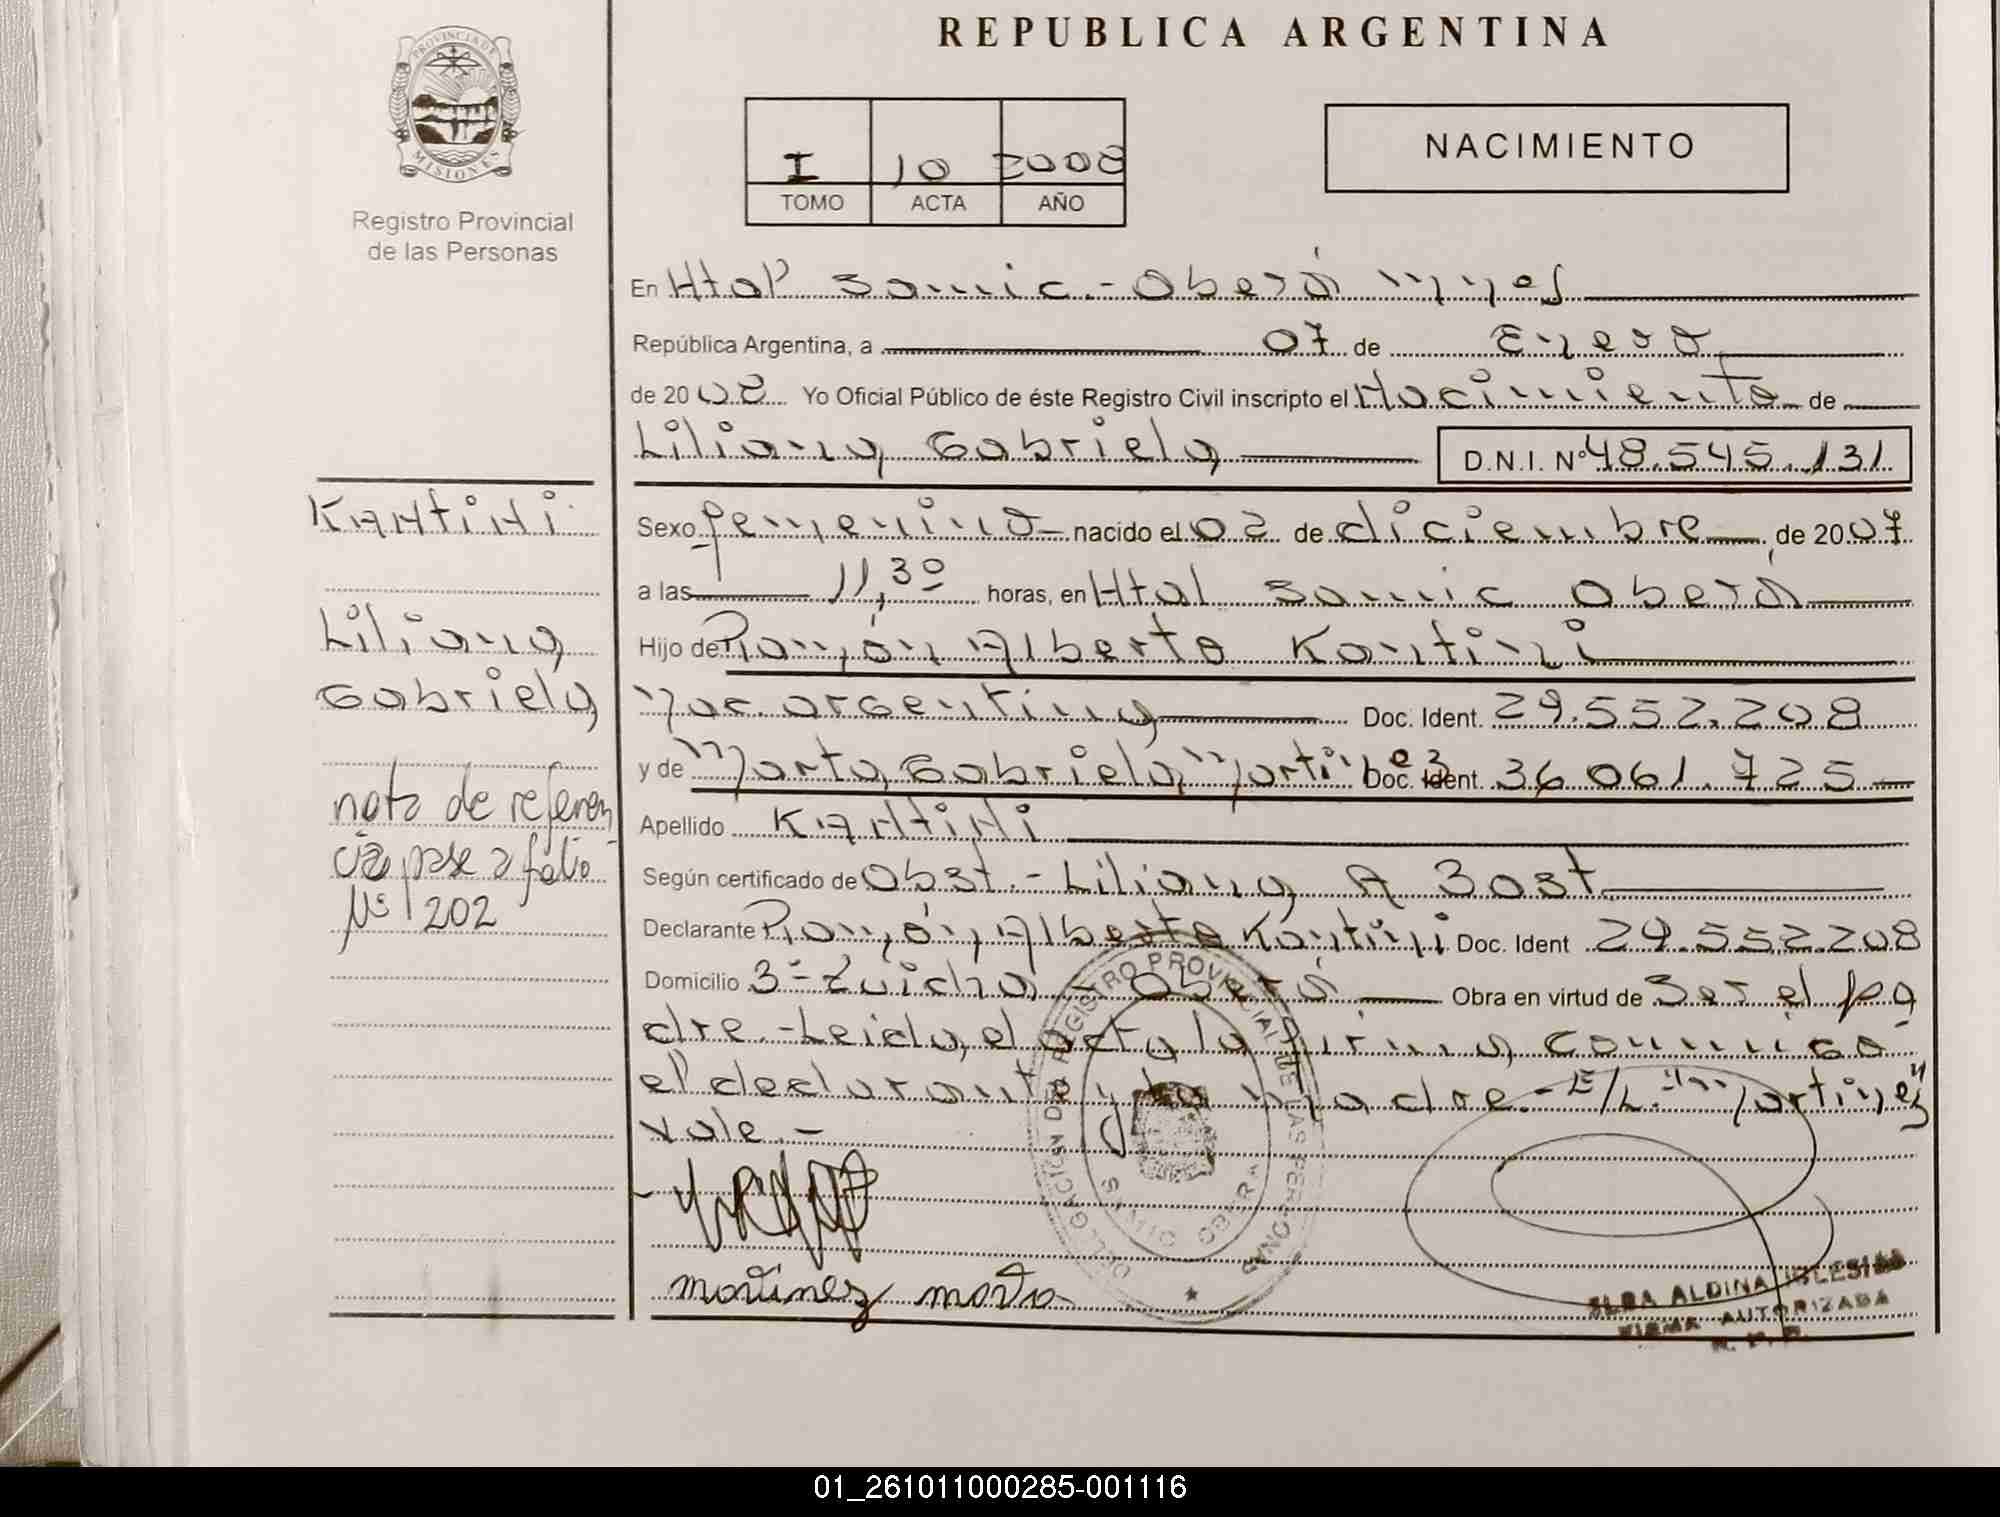 REPUBLICA ARGENTINA
PROVINCIA DE
MISIONES
Registro Provincial
de las Personas
I 10 2008
TOMO ACTA AÑO
NACIMIENTO
En Htal Samic.- Oberá Mnes
República Argentina, a 07 de Enero
de 2008 Yo Oficial Público de éste Registro Civil inscripto el Nacimiento de
Liliana Gabriela D.N.I. Nº 48.545.131
KANtiNi
Liliana
Gabriela
nota de referen
cia pase a folio
Nº 202
Sexo femenino nacido el 02 de diciembre de 2007
a las 11,30 horas, en Htal Samic Oberá
Hijo de Ramón Alberto Kantini
Nac. argentina Doc. Ident. 29.552.208
y de Marta Gabriela Martinez Doc. Ident. 36.061.725
Apellido KANtiNi
Según certificado de Obst.- Liliana A Bast
Declarante Ramón Alberto Kantini Doc. Ident 29.552.208
Domicilio Oberá Obra en virtud de Ser el pa
dre.- Leida el acta la firma conmigo
el declarante y la madre.- E/L: "Martinez"
vale.-
DELEGACIÓN DEL REGISTRO PROVINCIAL DE LAS PERSONAS
OBERA
martinez marta
ELBA ALDINA IGLESIAS
FIRMA AUTORIZADA
R. P. P.
01_261011000285-001116